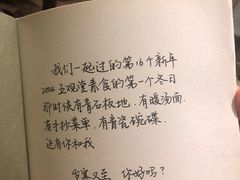 我们一起过的第16个新年
2004 五观堂素食的第一个冬日
那时候有青石板地，有暖汤面
有手抄菜单，有青瓷碗碟
还有你和我
岁寒又至 你好吗？